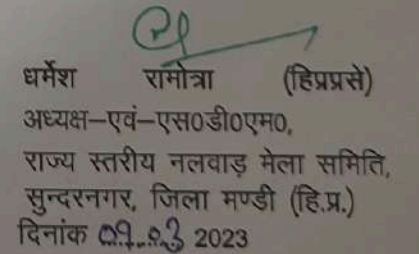 धर्मेश रामोत्रा (हिप्रप्रसे)
अध्यक्ष–एवं–एस०डी०एम०,
राज्य स्तरीय नलवाड़ मेला समिति,
सुन्दरनगर, जिला मण्डी (हि.प्र.)
दिनांक 09.03 2023